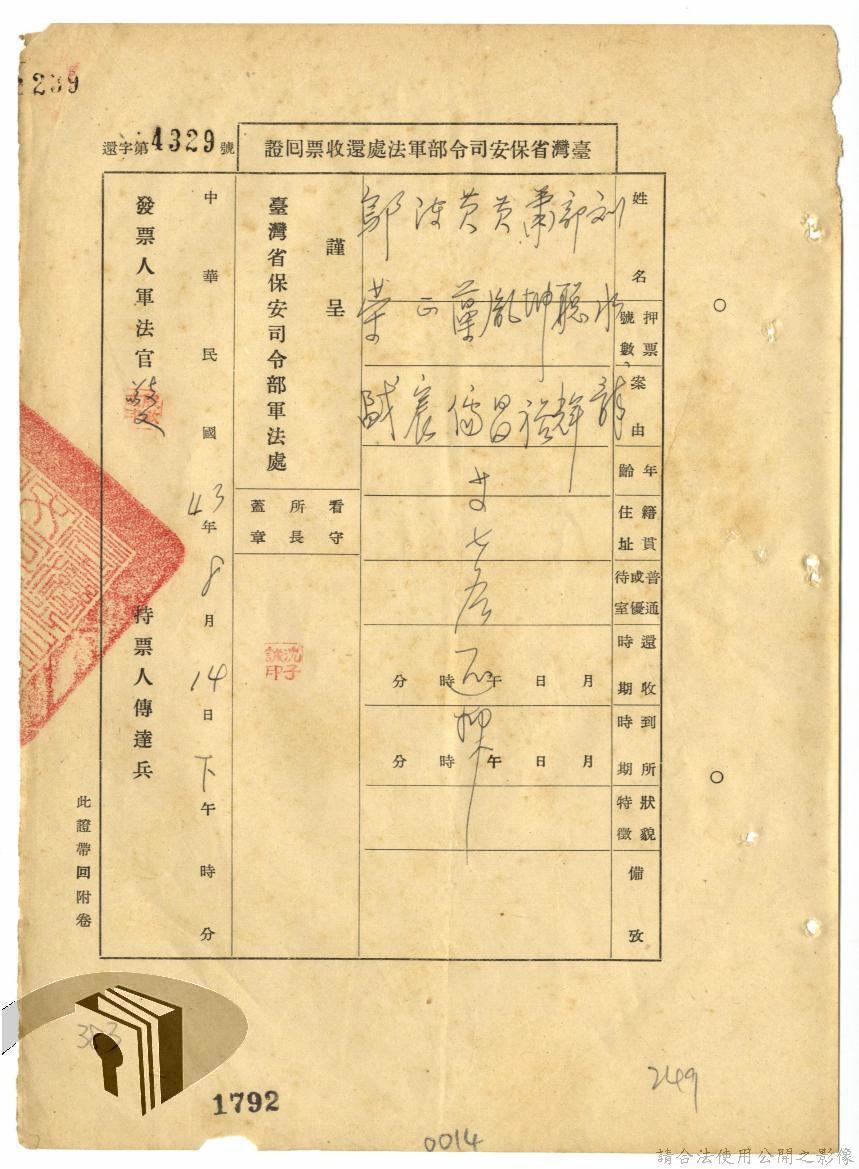 239
還字第4329號
臺灣省保安司令部軍法處還收票回證
姓名
押票號數
案由
年齡
籍貫住址
普通或優待室
還收時期
到所時期
狀貌特徵
備攷
刘水龍
郭聰輝
蕭坤裕
黃胤昌
黃蘭儒
陳正宸
鄭荣
七名 还押
月 日 午 時 分
月 日 午 時 分
謹呈
臺灣省保安司令部軍法處
看守所長蓋章
中華民國43年8月14日下午 時 分
發票人軍法官
持票人傳達兵
此證帶回附卷
383
1792
249
0014
請合法使用公開之影像